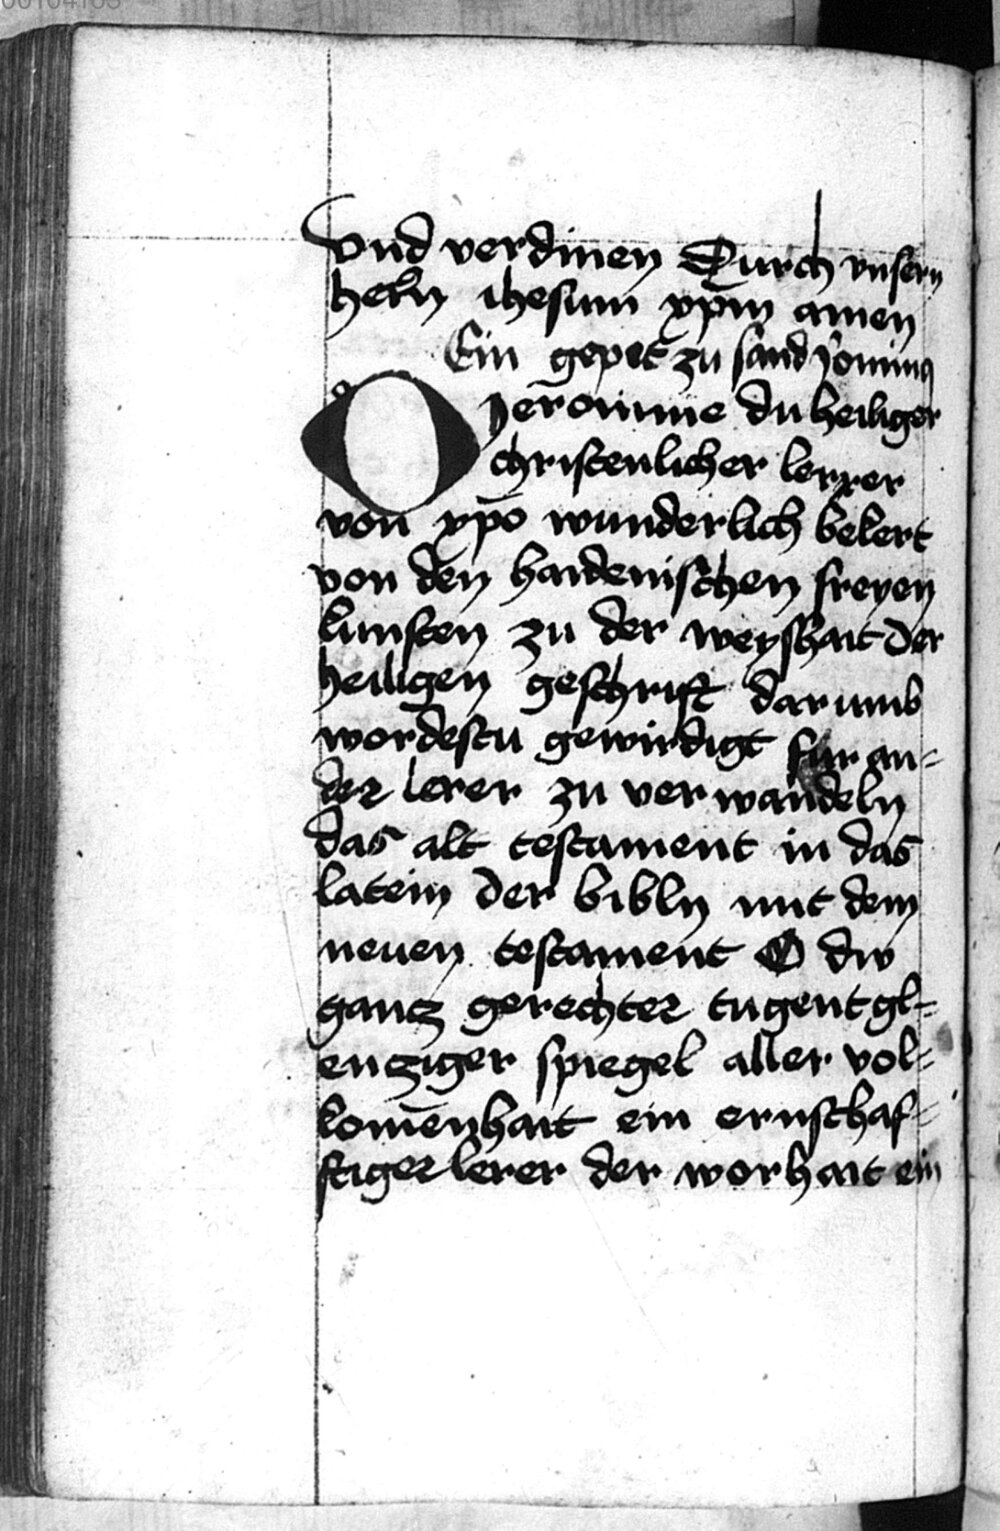 00104163
vnd verdinen Durch vnsern
hern ihesum xp̄m amen
Ein gepet zu sand
O Jeronime du heiliger
christenlicher lerrer
von xp̄o wunderlich belert
von den haidenischen freyen
kunsten zu der weyshait der
heiligen geschrift darumb
wordestu gewirdigt fur an=
der lerer zu verwandeln
das alt testament in das
latein der bibln mit dem
neuen testament O diw
gantz gerechter tugent gl=
entziger spiegel aller vol=
komēnhait ein ernschaf=
ftiger lerer der worhait ein